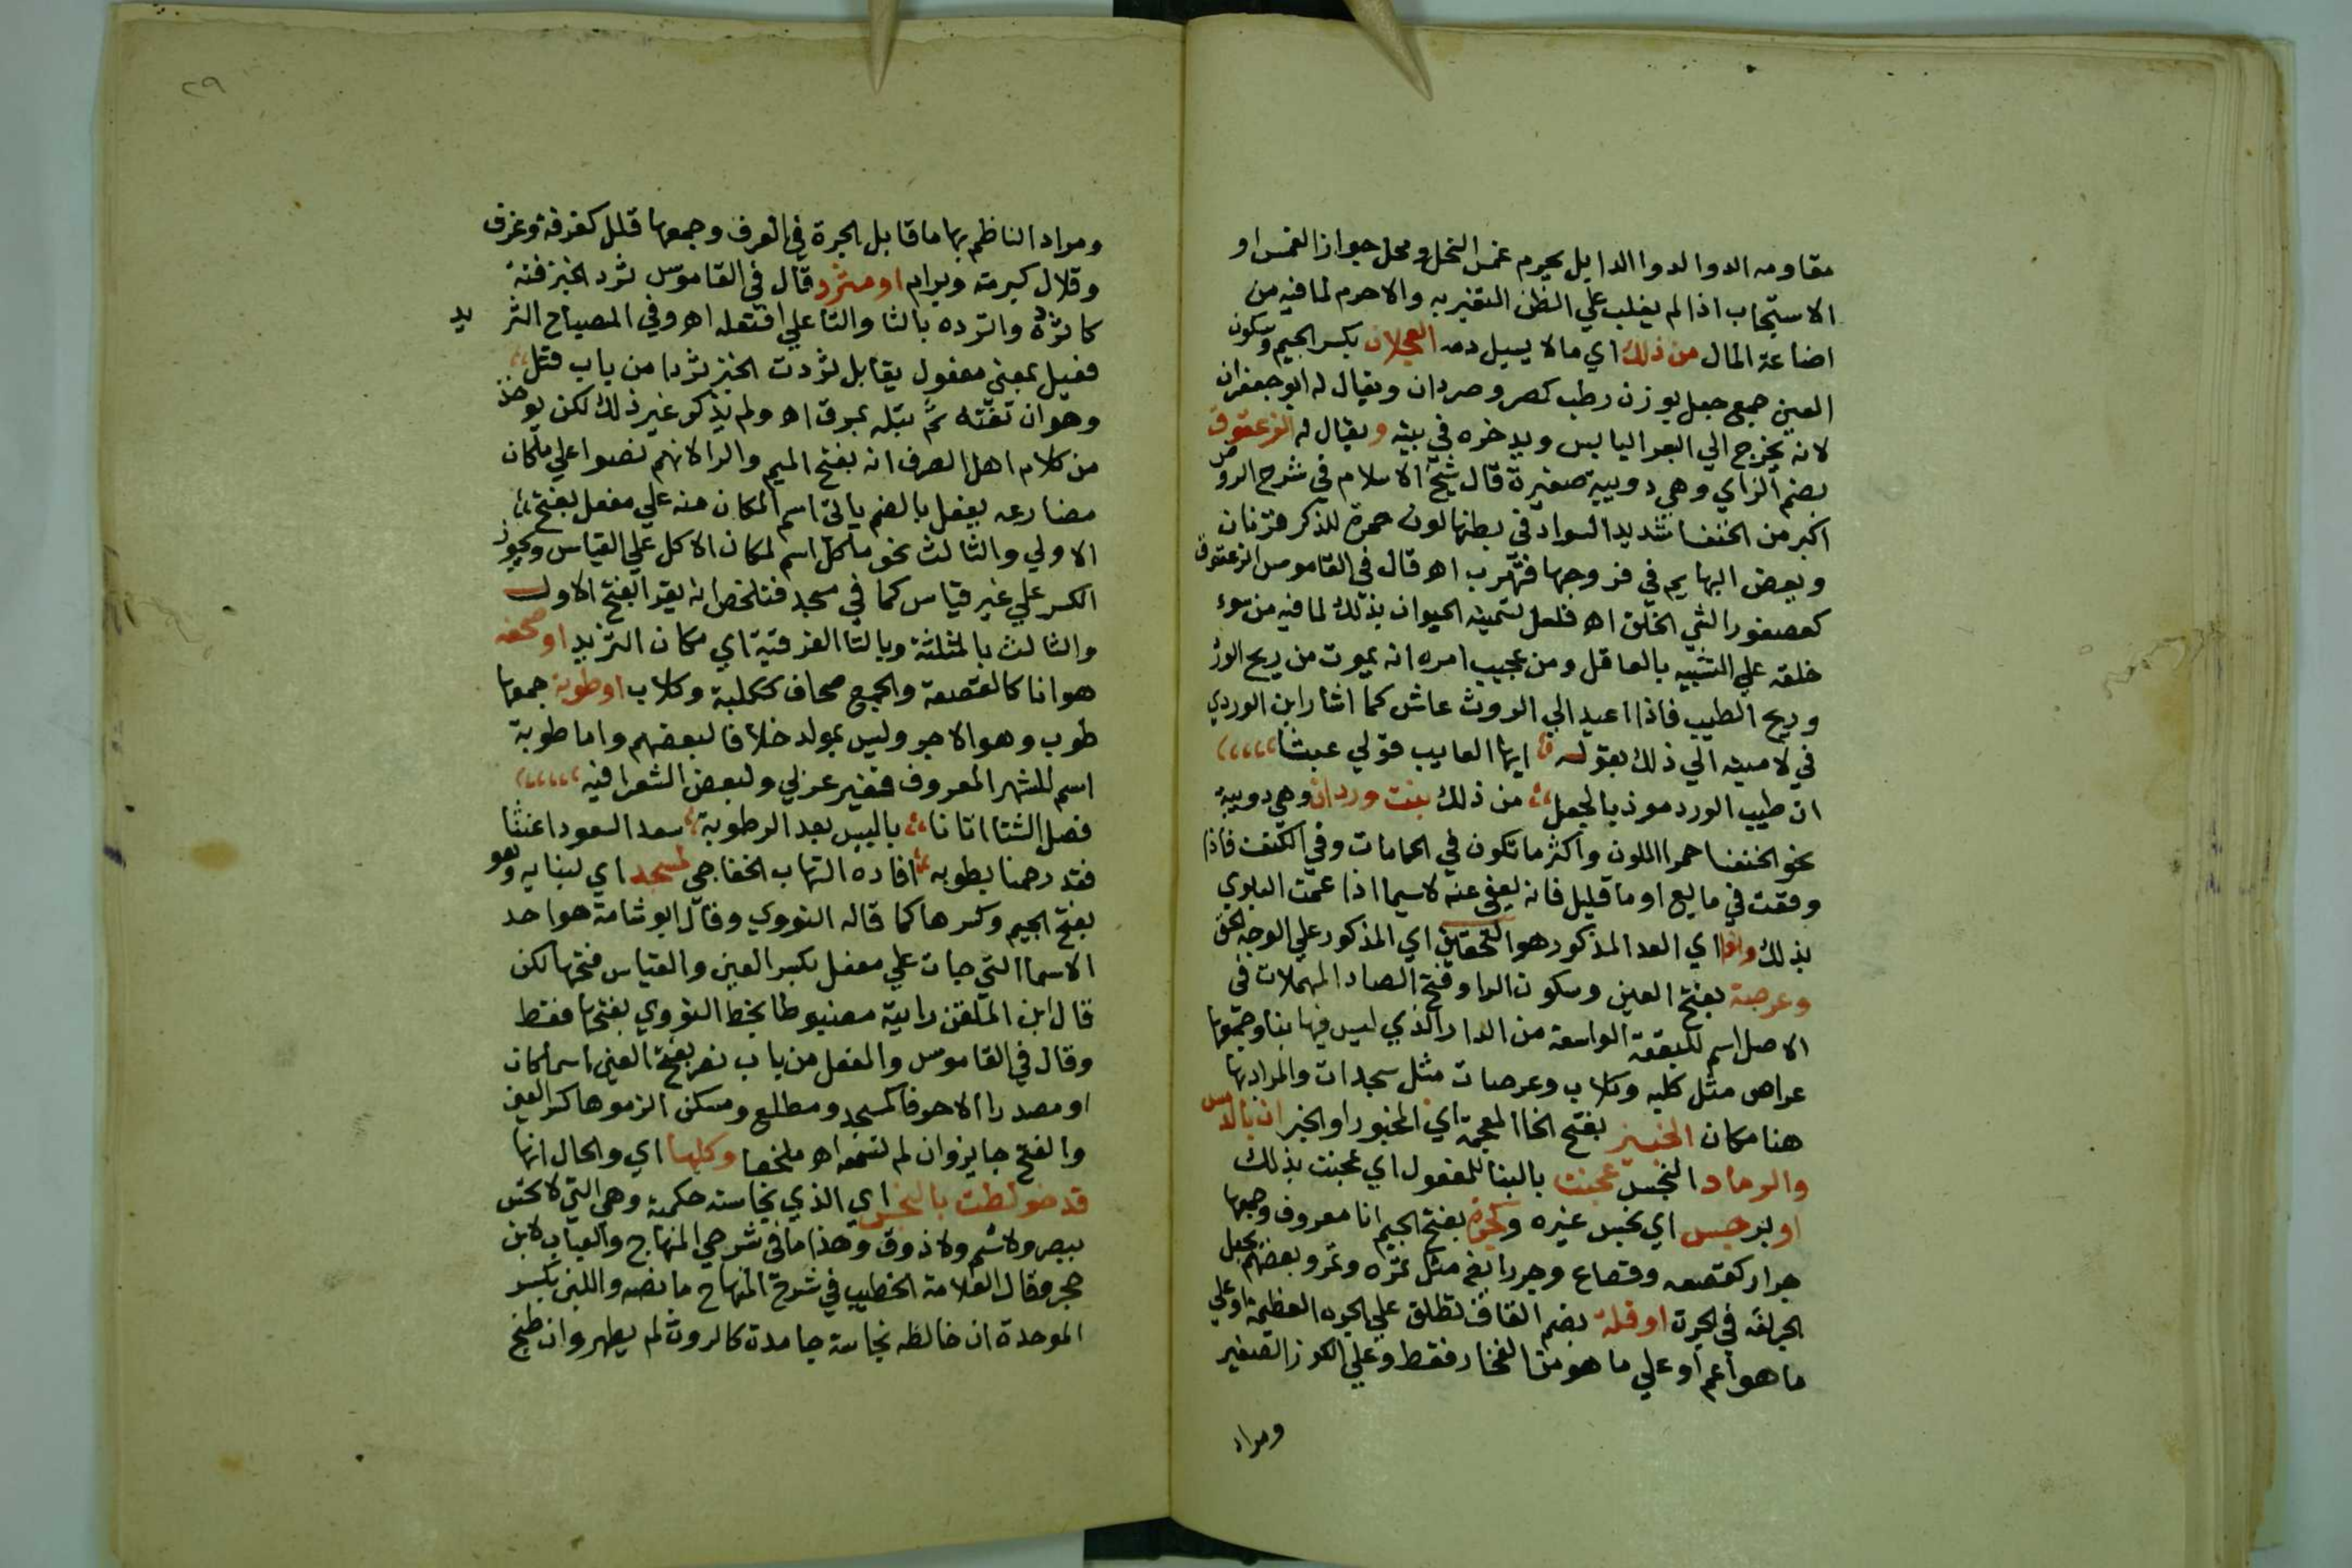 مقاومه الدوا لدوا الدا بل يحرم غمس النحل ومحل جواز الغمس او
الاستحباب اذا لم يغلب علي الظن التغير به والا حرم لما فيه من
اضاعة المال من ذلك اي ما لا يسيل دمه الجعلان بكسر الجيم وسكون
العين جمع جعل بوزن رطب كصرد وصردان ويقال له ابو جعفران
لانه يخرج الي البعر اليابس ويدخره في بيته ويقال له الزعقوق
بضم الزاي وهي دويبة صغيرة قال شيخ الاسلام في شرح الروض
اكبر من الخنفسا شديد السواد في بطنها لون حمرة للذكر قرنان
وبعض البهايم في فروجها فتهرب اه قال في القاموس الزعقوق
كعصفور السي الخلق اه فلعل تسمية الحيوان بذلك لما فيه من سوء
خلقه علي التشبيه بالعاقل ومن عجيب امره انه يموت من ريح الورد
وريح الطيب فاذا اعيد الي الروث عاش كما اشار ابن الوردي
في لاميته الي ذلك بقوله ايها العايب قولي عبثا
ان طيب الورد موذ بالجعل من ذلك بنت وردان وهي دويبة
نحو الخنفسا حمرا اللون واكثر ما تكون في الحمامات وفي الكنف فاذا
وقعت في مايع او ما قليل فانه يعفي عنه لاسيما اذا عمت البلوي
بذلك وذا اي العد المذكور هو التحقيق اي المذكور علي الوجه الحق
وعرصة بفتح العين وسكون الرا وفتح الصاد المهملات في
الاصل اسم للبقعة الواسعة من الدار الذي ليس فيها بنا وجمعها
عراص مثل كلبه وكلاب وعرصات مثل سجدات والمراد بها
هنا مكان الخبز بفتح الخا المعجمة اي المخبوز او الخبز ان بالدمس
والرماد النجس عجنت بالبنا للمفعول اي عجنت بذلك
او برجس اي نجس غيره وجرة بفتح الجيم انا معروف وجمعها
جرار كقصعه وقصاع وجر ايضا مثل تمره وتمر وبعضهم يجعل
الجر لغة في الجرة او قلة بضم القاف تطلق علي الجره العظيمة او علي
ما هو اعم او علي ما هو من الفخار فقط وعلي الكوز الصغير
ومراد
٢٩
ومراد الناظم بها ما قابل الجرة في العرف وجمعها قلل كغرفة وغرف
وقلال كبرمة وبرام او مثرد قال في القاموس ثرد الخبز فته
كاثرده والترده بالثا والتا علي افتعله اه وفي المصباح الثريد
فعيل بمعني مفعول يقابل ثردت الخبز ثردا من باب قتل
وهو ان تفته ثم تبله بمرق اه ولم يذكر غير ذلك لكن يوخذ
من كلام اهل الصرف انه بفتح الميم والرا لانهم نصوا علي ما كان
مضارعه يفعل بالضم ياتي اسم المكان منه علي مفعل بفتح
الاولي والثالث نحو ماكل اسم لمكان الاكل علي القياس ويجوز
الكسر علي غير قياس كما في مسجد فتلخص انه يقرا بفتح الاول
والثالث بالمثلثة وبالتا الفوقية اي مكان الثريد او صحفه
هو انا كالقصعة والجمع صحاف ككلبة وكلاب او طوبة جمعها
طوب وهو الاجر وليس بمولد خلافا لبعضهم واما طوبة
اسم للشهر المعروف فغير عربي ولبعض الشعرا فيه
فصل الشتا اتانا باليبس بعد الرطوبة سعد السعود اغثنا
فقد رحمنا بطوبه افاده الشهاب الخفاجي لمسجد اي لبنايه وهو
بفتح الجيم وكسرها كما قاله النووي وقال ابو شامة هو احد
الاسما التي جات علي مفعل بكسر العين والقياس فتحها لكن
قال ابن الملقن رايته مضبوطا بخط النووي بفتحها فقط
وقال في القاموس والمفعل من باب نصر بفتح العين اسما كان
او مصدرا الا حرفا كمسجد ومطلع ومسكن الزموها كسر العين
والفتح جايز وان لم نسمعه اه ملخصا وكلها اي والحال انها
قد خولطت بالنجس اي الذي نجاسته حكمية وهي التي لا تحس
ببصر ولا شم ولا ذوق وهذا ما في شرحي المنهاج والعباب لابن
حجر وقال العلامة الخطيب في شرح المنهاج ما نصه واللبن بكسر
الموحدة ان خالطه نجاسة جامدة كالروث لم يطهر وان طبخ